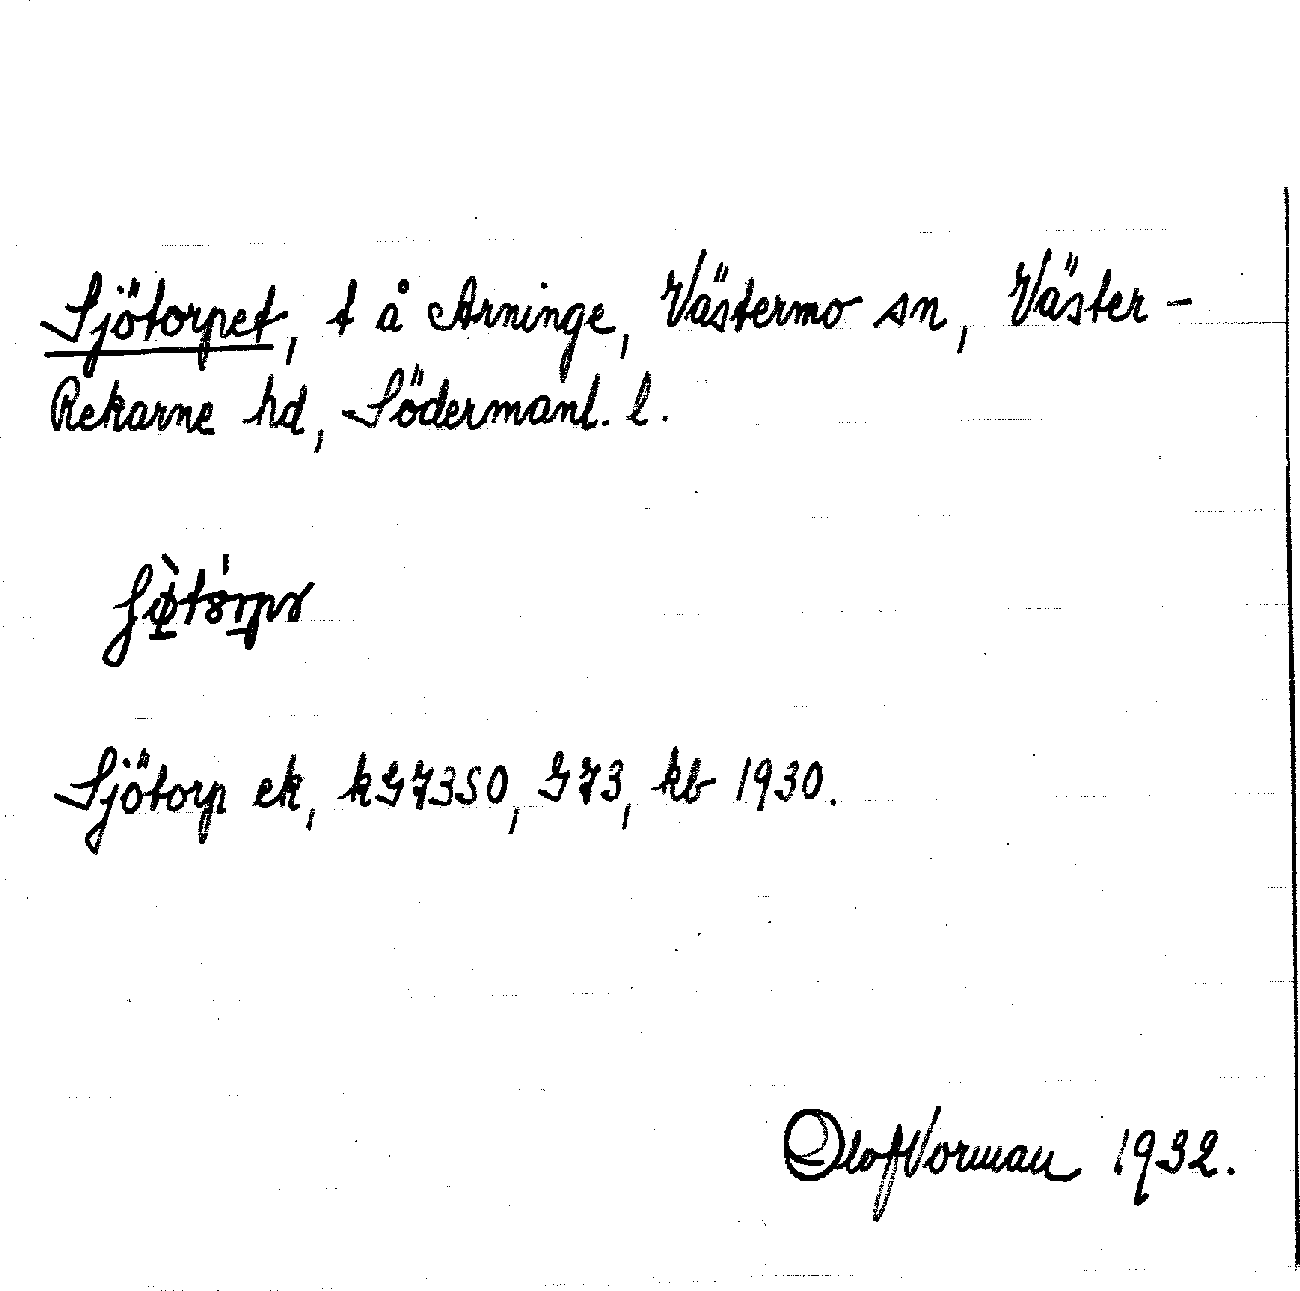 Sjötorpet, t å Arninge, Västermo sn, Väster-
Rekarne hd, Södermanl. l.
Sjötorp ek, kG7350, G73, kb 1930.
Olof Norman 1932.